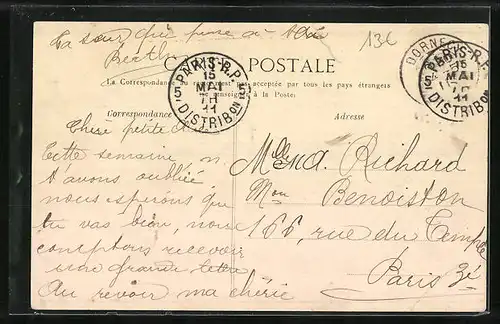 La sœur qui pense à
136
CARTE POSTALE
La Correspondance au recto n'est pas acceptée par tous les pays étrangers
(Se renseigner à la Poste.)
PARIS-R.P.
15
MAI
7H
11
5
DISTRIBON
DORNE
PARIS-R.P.
15
MAI
7H
11
DISTRIBON
Correspondance
Adresse
Chère petite
Cette semaine
t'avons oubliée
nous espérons que
tu vas bien, nous
comptons recevoir
une grande lettre
Au revoir ma chérie
Richard
Mon Benoiston
166, rue du Temple
Paris 3è